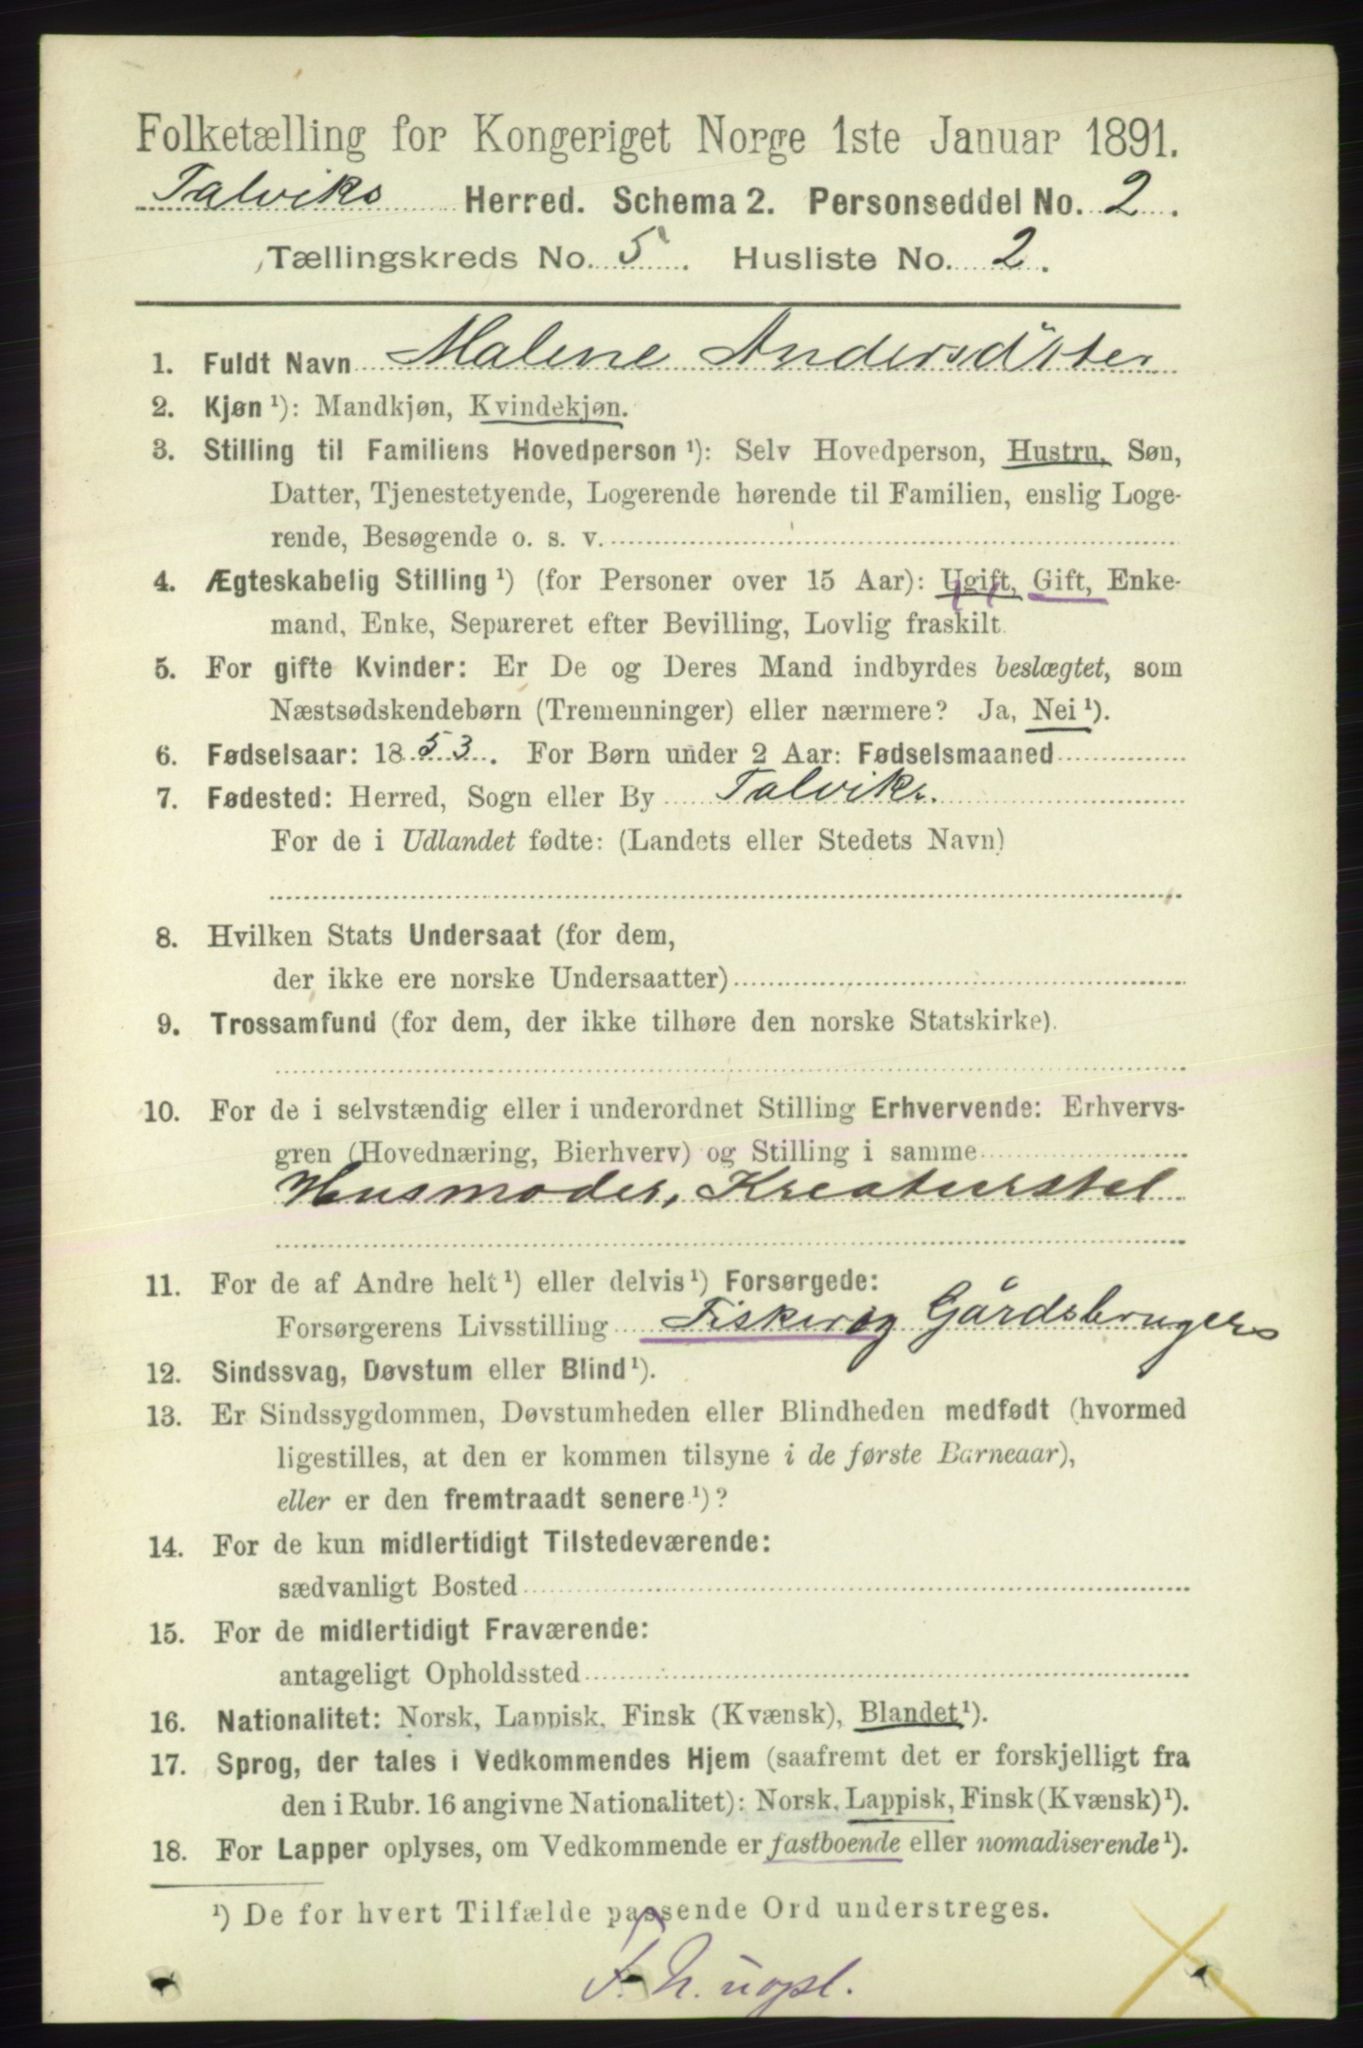 Folketælling for Kongeriget Norge 1ste Januar 1891.
Talviks Herred. Schema 2. Personseddel No. 2.
Tællingskreds No. 5. Husliste No. 2.
1. Fuldt Navn Malene Andersdåtter
2. Kjøn ¹): Mandkjøn, Kvindekjøn.
3. Stilling til Familiens Hovedperson ¹): Selv Hovedperson, Hustru, Søn,
Datter, Tjenestetyende, Logerende hørende til Familien, enslig Loge-
rende, Besøgende o. s. v.
4. Ægteskabelig Stilling ¹) (for Personer over 15 Aar): Ugift, Gift, Enke-
mand, Enke, Separeret efter Bevilling, Lovlig fraskilt.
5. For gifte Kvinder: Er De og Deres Mand indbyrdes beslægtet, som
Næstsødskendebørn (Tremenninger) eller nærmere? Ja, Nei ¹).
6. Fødselsaar: 1853. For Børn under 2 Aar: Fødselsmaaned
7. Fødested: Herred, Sogn eller By Talvik.
For de i Udlandet fødte: (Landets eller Stedets Navn)
8. Hvilken Stats Undersaat (for dem,
der ikke ere norske Undersaatter)
9. Trossamfund (for dem, der ikke tilhøre den norske Statskirke).
10. For de i selvstændig eller i underordnet Stilling Erhvervende: Erhvervs-
gren (Hovednæring, Bierhverv) og Stilling i samme
Husmoder, Kreaturstel
11. For de af Andre helt ¹) eller delvis ¹) Forsørgede:
Forsørgerens Livsstilling Fisker og Gårdsbruger
12. Sindssvag, Døvstum eller Blind ¹).
13. Er Sindssygdommen, Døvstumheden eller Blindheden medfødt (hvormed
ligestilles, at den er kommen tilsyne i de første Barneaar),
eller er den fremtraadt senere ¹)?
14. For de kun midlertidigt Tilstedeværende:
sædvanligt Bosted
15. For de midlertidigt Fraværende:
antageligt Opholdssted
16. Nationalitet: Norsk, Lappisk, Finsk (Kvænsk), Blandet ¹).
17. Sprog, der tales i Vedkommendes Hjem (saafremt det er forskjelligt fra
den i Rubr. 16 angivne Nationalitet): Norsk, Lappisk, Finsk (Kvænsk) ¹).
18. For Lapper oplyses, om Vedkommende er fastboende eller nomadiserende ¹).
¹) De for hvert Tilfælde passende Ord understreges.
uopl.